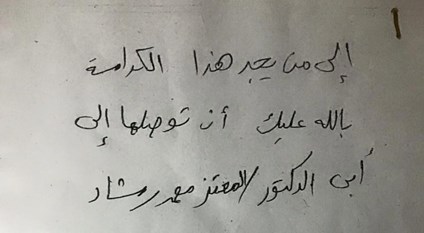 إلى من يجد هذا الكراسة
بالله عليك أن توصلها إلى
أبي الدكتور/المعتز محمد رشاد